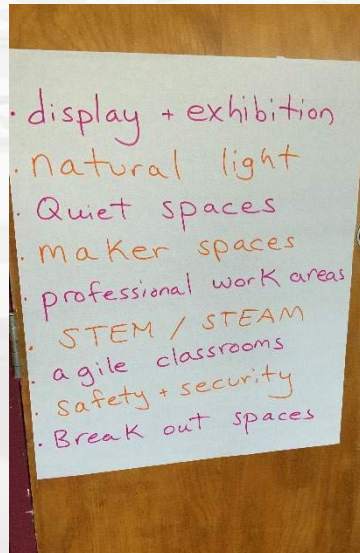 · display + exhibition
· natural light
· Quiet spaces
· maker spaces
· professional work areas
· STEM / STEAM
· agile classrooms
· safety + security
· Break out spaces